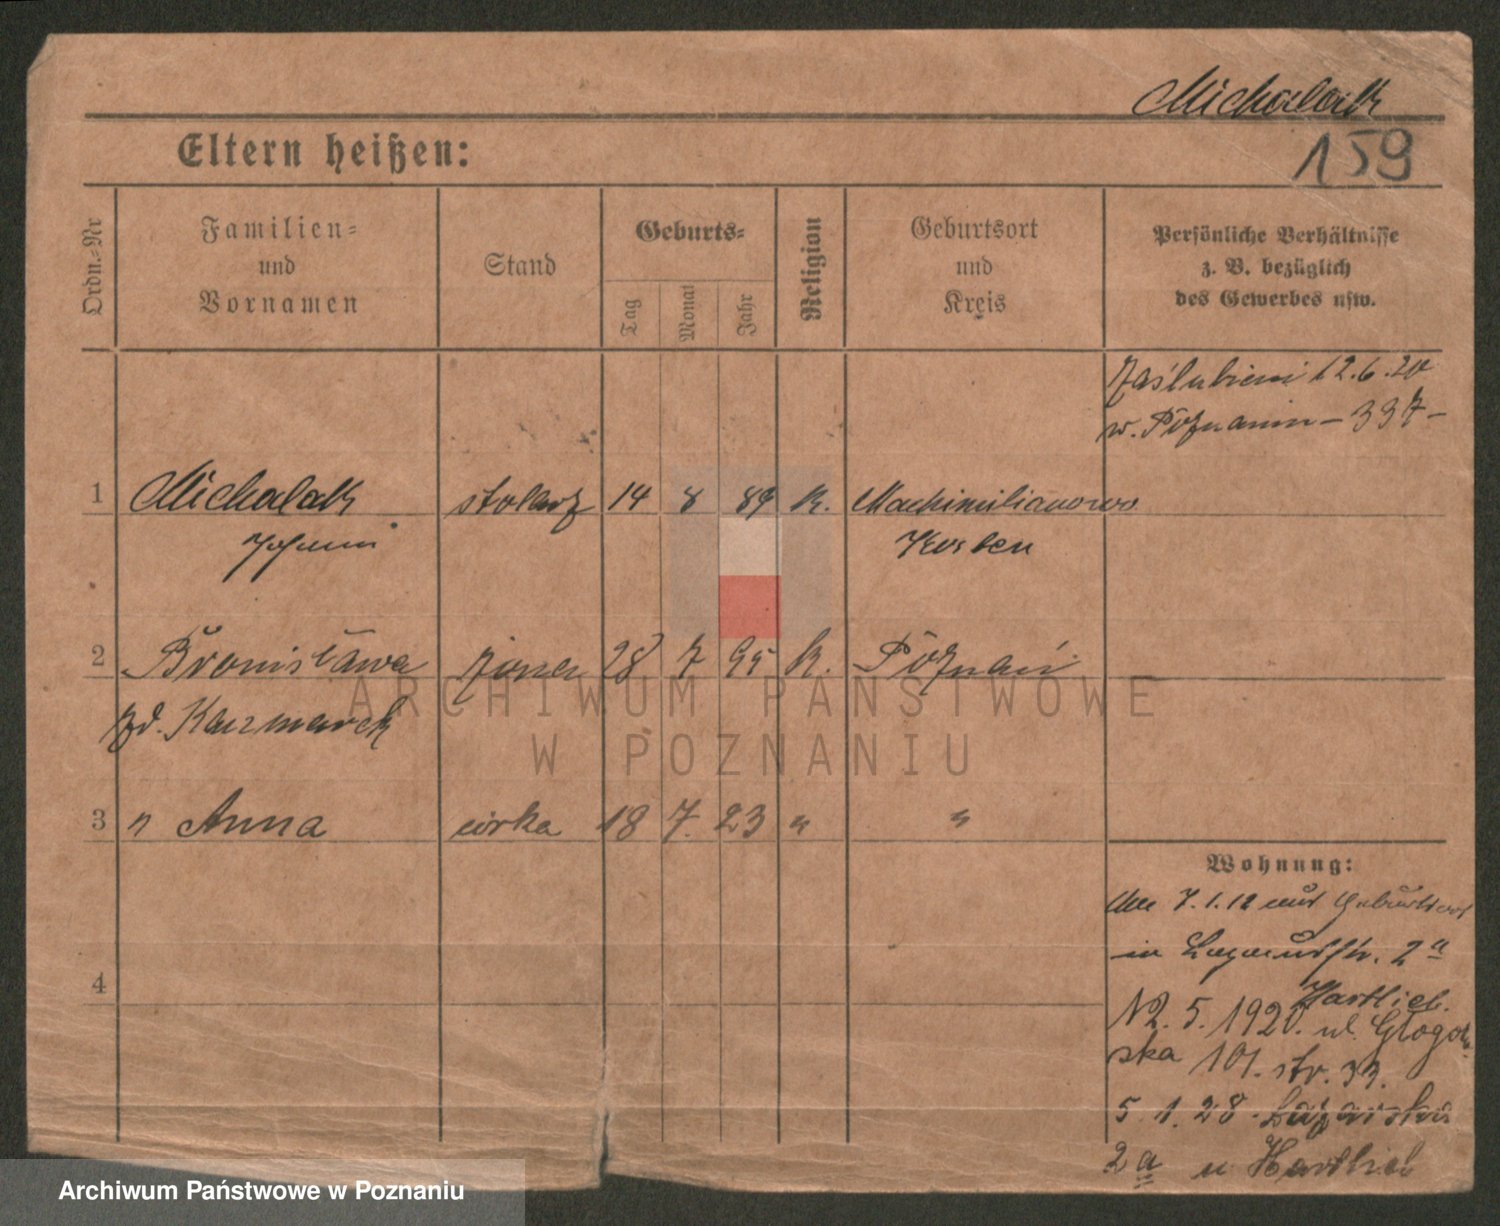 Michalak
159
Eltern heißen:
Ordn.-Nr
Familien-
und
Vornamen
Stand
Geburts-
Tag
Monat
Jahr
Religion
Geburtsort
und
Kreis
Persönliche Verhältnisse
z. B. bezüglich
des Gewerbes usw.
Zaślubieni 12.6.20
w. Poznaniu - 337 -
1 Michalak stolarz 14 8 89 K. Machimilianowo
Kosten
2 Bronisława żona 28 7 95 K. Poznań
zd. Kaczmarek
3 " Anna córka 18 7. 23 " "
4
Wohnung:
7.1.12
in 2a
Hartlieb.
12.5.1920. ul. Głogow-
ska 101. str. 33.
5.1.28 Łazarska
2a u Hartlieb
ARCHIWUM PAŃSTWOWE
W POZNANIU
Archiwum Państwowe w Poznaniu